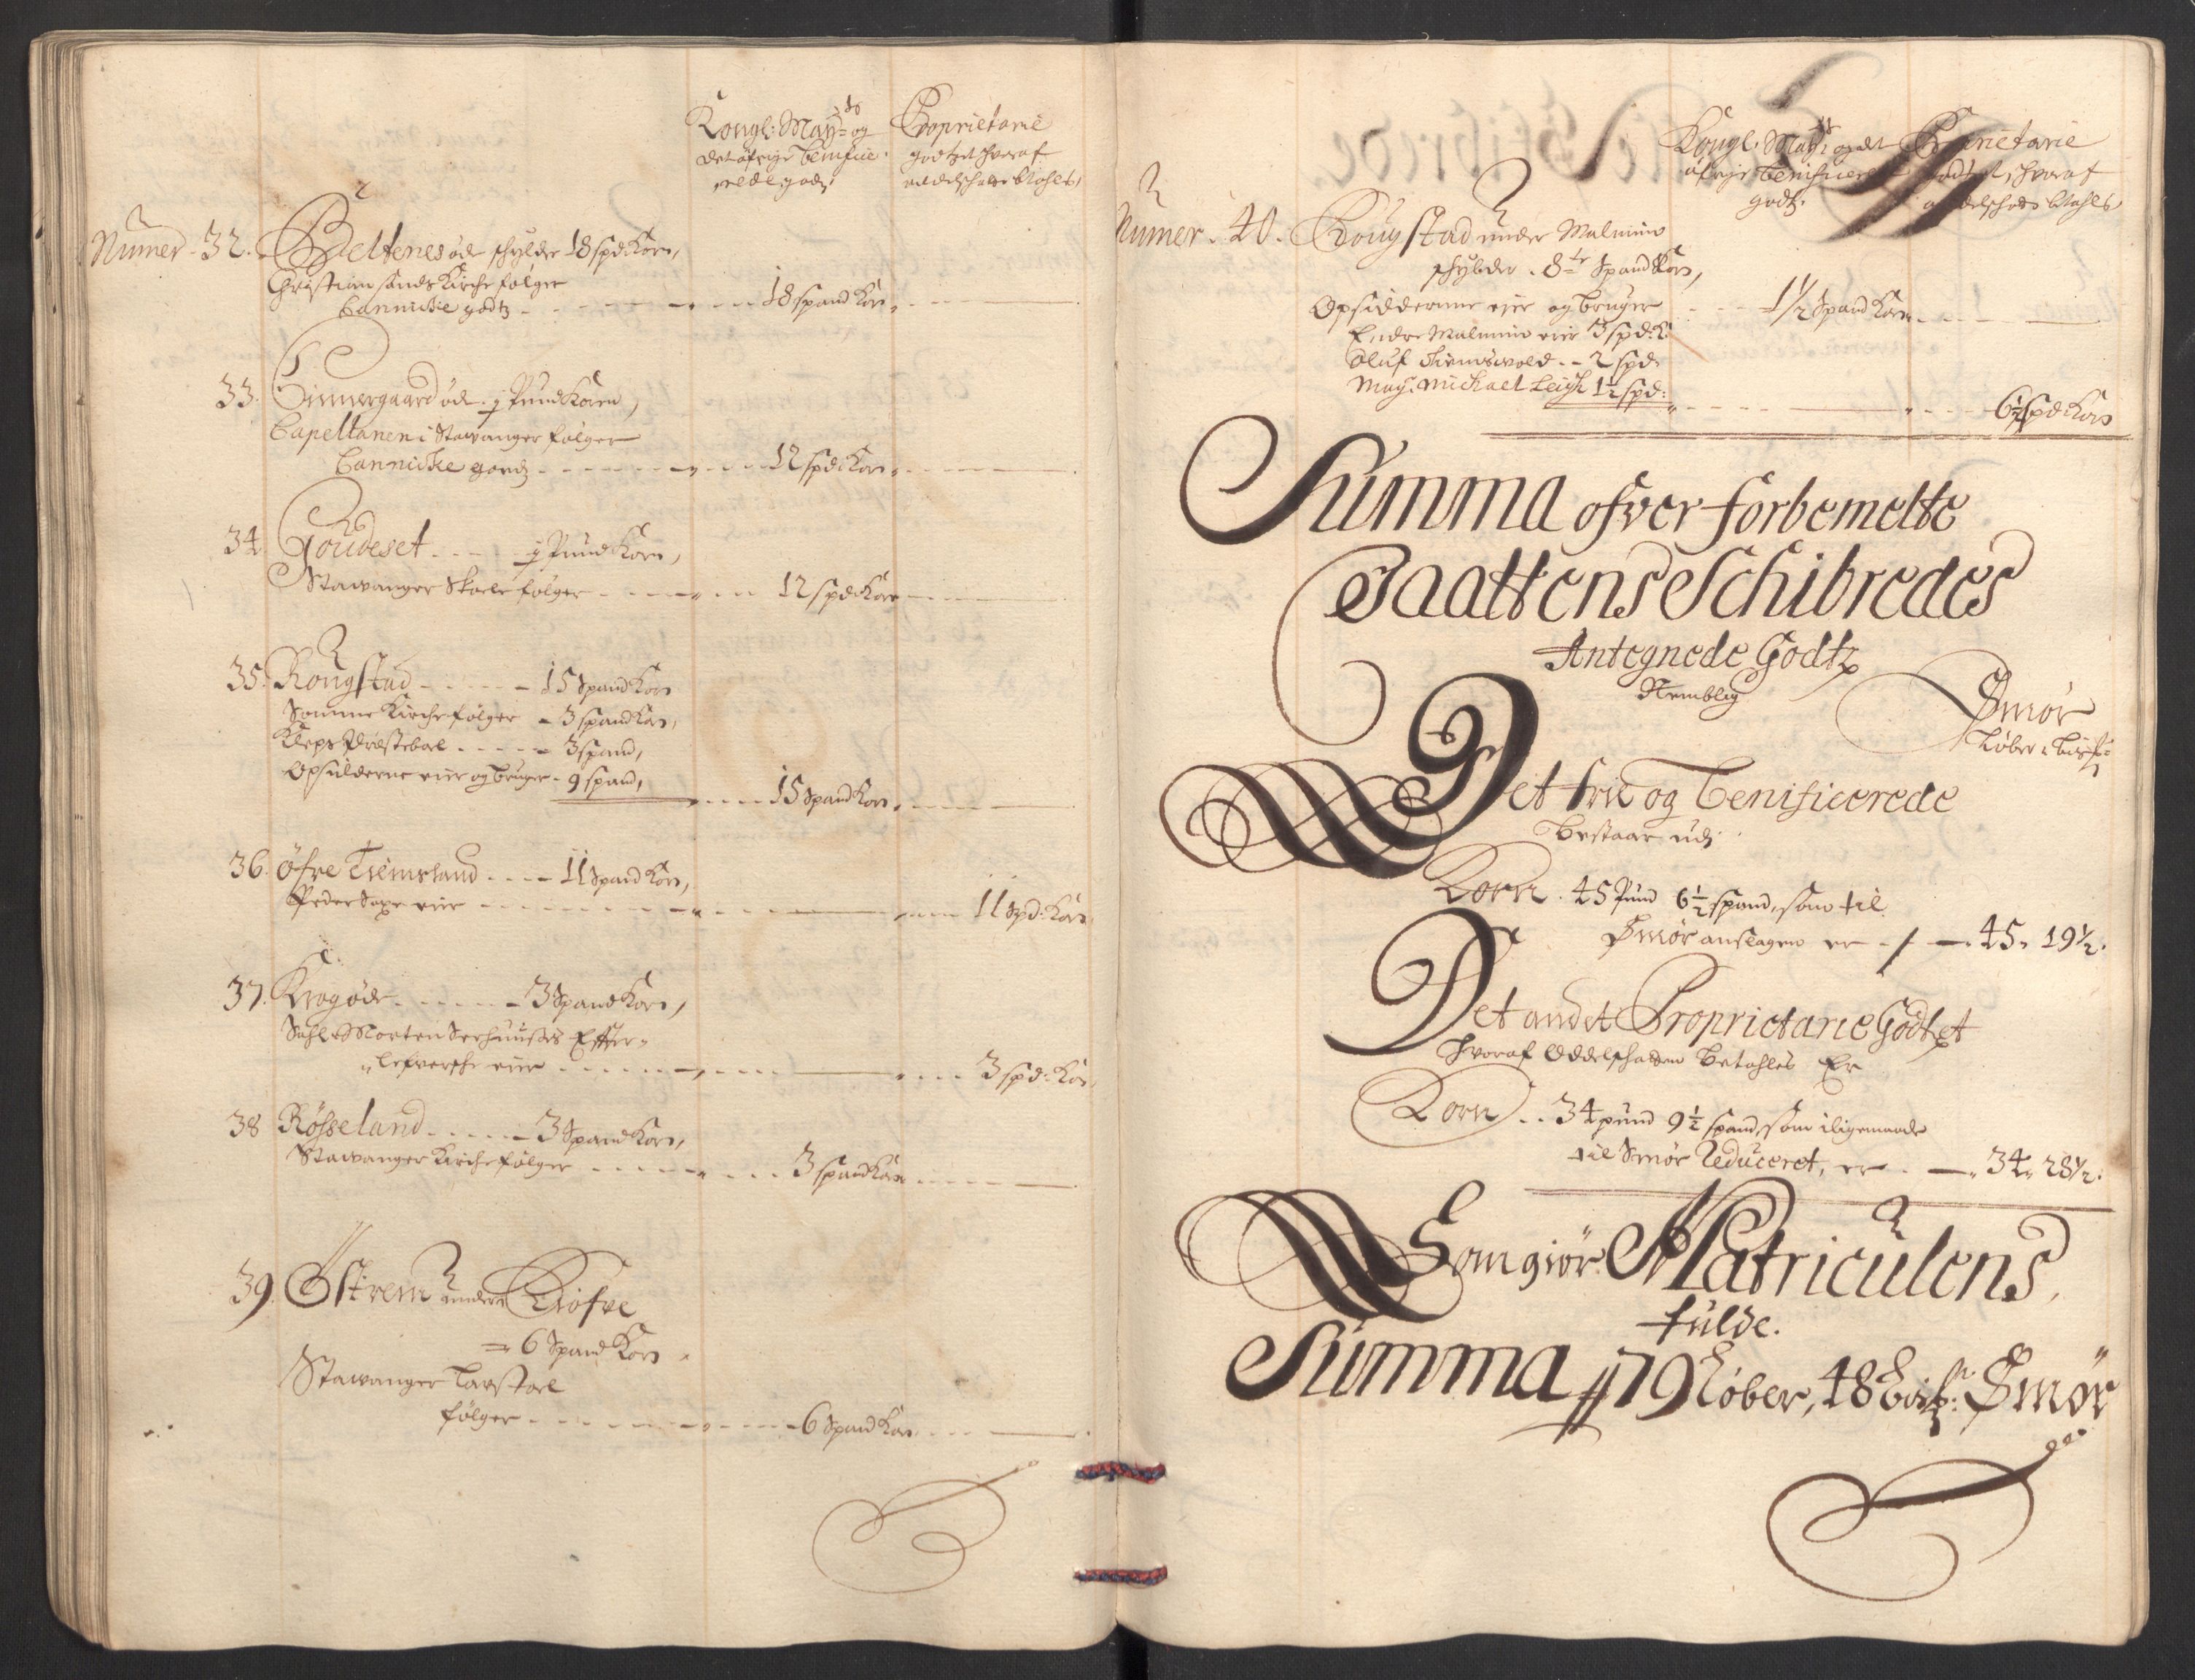 Kongl: May:ts og
det öfrige benificerede godz
Proprietarie
godtzet hvoraf
oddelschatt betahles,
Numer. 32. Beltenes öde schylder 18 spd Korn,
Christiansands Kirche følger
Cannicke godtz - - - 18 spand Korn
33. Simmergaard öde. j Pund Korn,
Capellanen i Stawanger følger
Cannicke godtz - - - 12 spd: Korn
34. Goudeset - - - j Pund Korn,
Stawanger Skoele følger - - - 12 spd: Korn
35. Rougstad - - - 15 Spand Korn
Somme Kirche følger - 3 spand Korn,
Kleps Præsteboel - - - 3 spand,
Opsidderne eier og bruger - 9 spand,
- - - 15 Spand Korn
36. Öfre Tiemsland - - - 11 Spand Korn,
Peder Saxe eier - - - 11 Spd: Korn
37. Krog öde - - - 3 Spand Korn,
Sahl: Morten Seehuusens Efter-
lefversche eier - - - 3 spd: Korn
38 Rösseland - - - 3 Spand Korn,
Stawanger Kirche følger - - - 3 spand Korn
39. Östrem under Kiöfve
6 Spand Korn
Stawanger
følger - - - 6 Spand Korn
Kongl: May:ts og det
öfrige benificerede
godtz.
Proprietarie
godtzet, hvoraf
oddelschatt betahles
Numer. 40. Rougstad under Malmim
schylder. 8te Spand Korn,
Opsidderne eier og bruger - - - 1 1/2 Spand Korn
Endre Malmim eier 3 spd: K:
Oluf - - 2 spd:
Mag: Michael Leigh 1 1/2 spd:
- - - 6 1/2 Spd Korn
Summa ofver forbemelte
Saattens Schibredes
Antegnede Godtz
Nemblig
Smør
Løber, bispd:
Det frie og Benificerede
bestaar udj
Korn. 45 Pund 6 1/2 spand, som til
Smør anslagen er - 45, 19 1/2.
Det andet Proprietarie Godtzet
Hvoraf Oddelschatten betahles Er
Korn - - 34 pund 9 1/2 spand, som iligemaade
til Smør Reduceret, er - 34, 28 1/2.
Som giör Matriculens
fulde.
Summa 79 Løber, 48 Smør